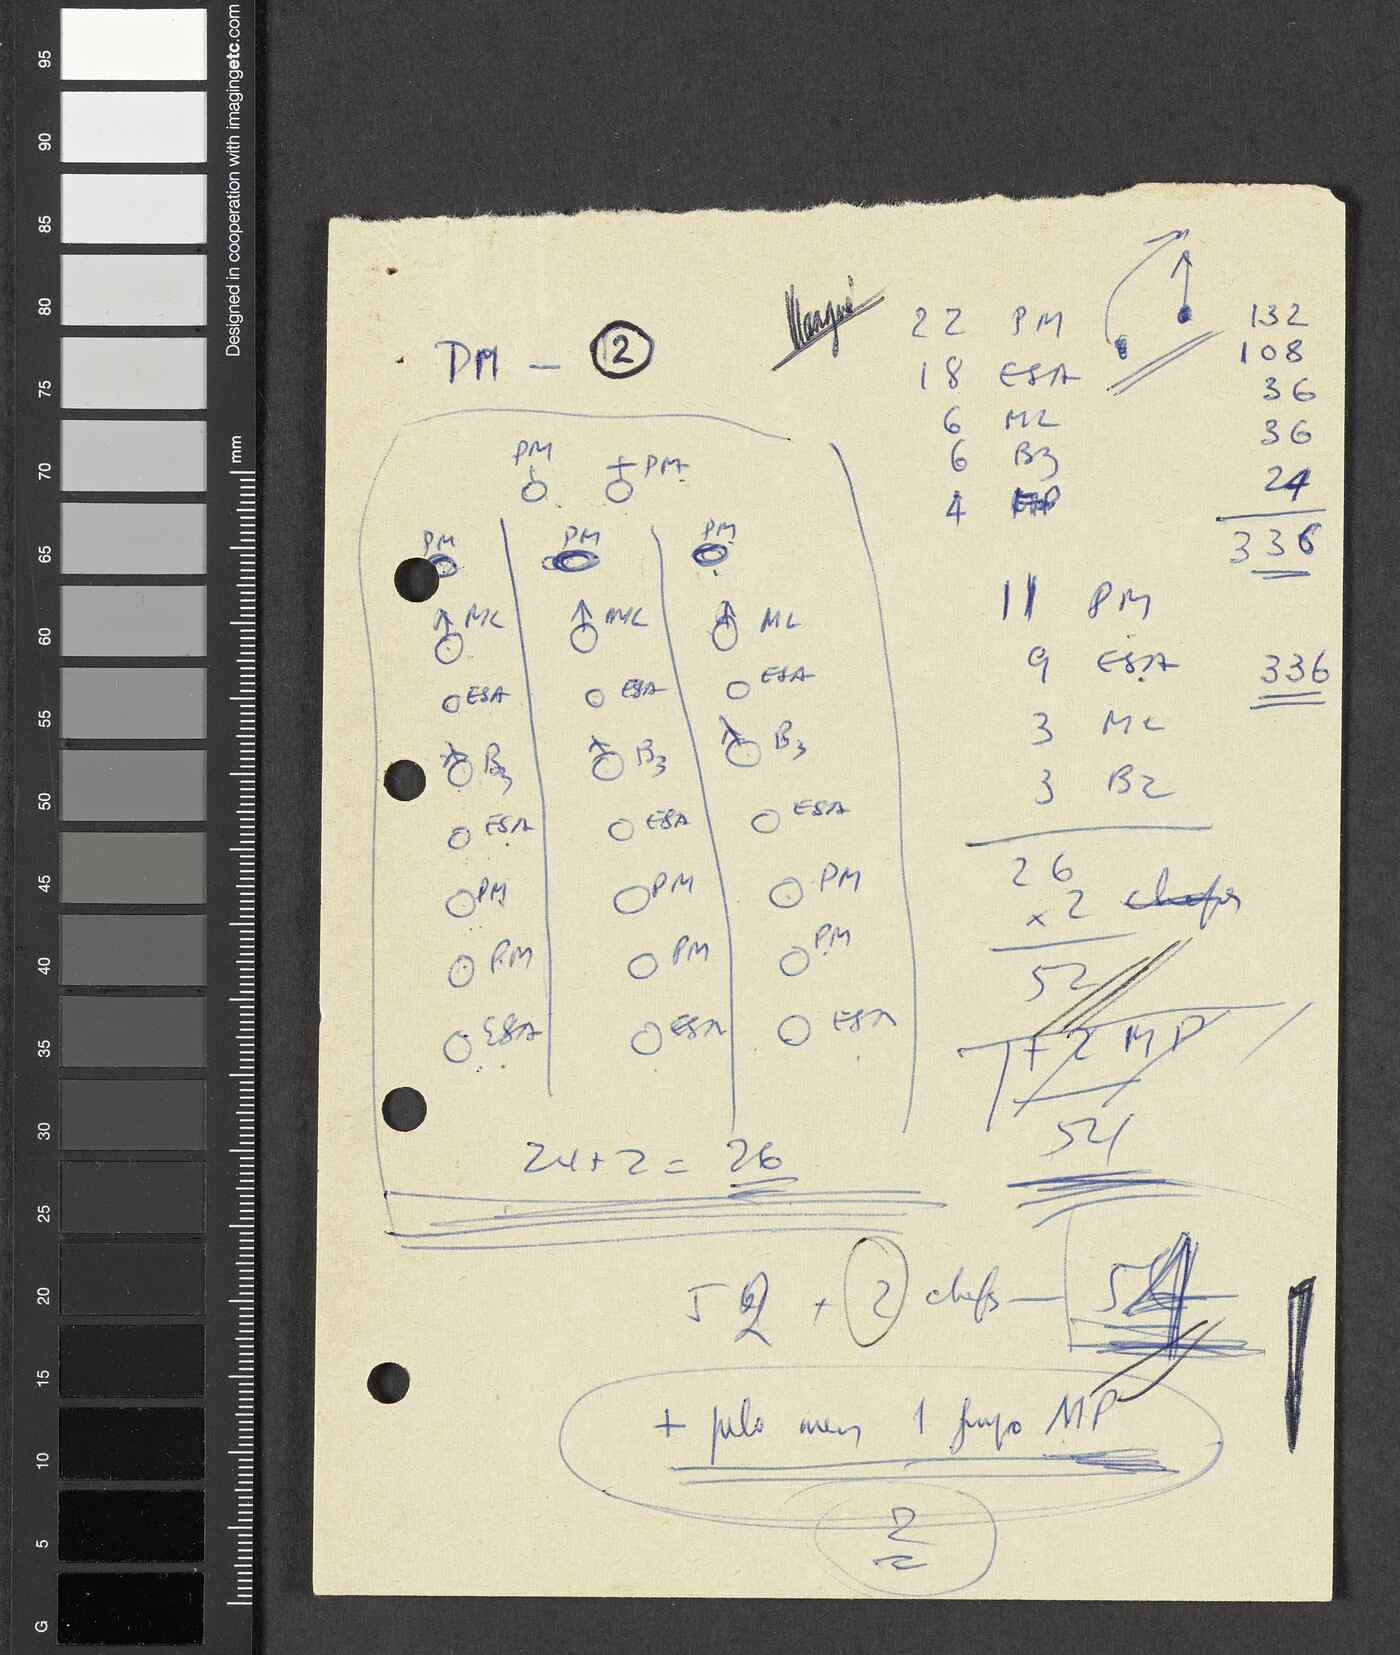 Designed in cooperation with imagingetc.com
mm
95
90
85
80
75
70
65
60
55
50
45
40
35
30
25
20
15
10
5
G
DM - 2
PM PM
PM PM PM
ML ML ML
ESA ESA ESA
B3 B3 B3
ESA ESA ESA
PM PM PM
PM PM PM
ESA ESA ESA
24+2 = 26
22 PM 132
18 ESA 108
6 ML 36
6 B3 36
4 24
336
11 PM
9 ESA 336
3 ML
3 B2
26
x 2 chefs
52
+ 2 MP
54
52 + 2 chefs — 54
+ pelo men 1 grupo MP
2